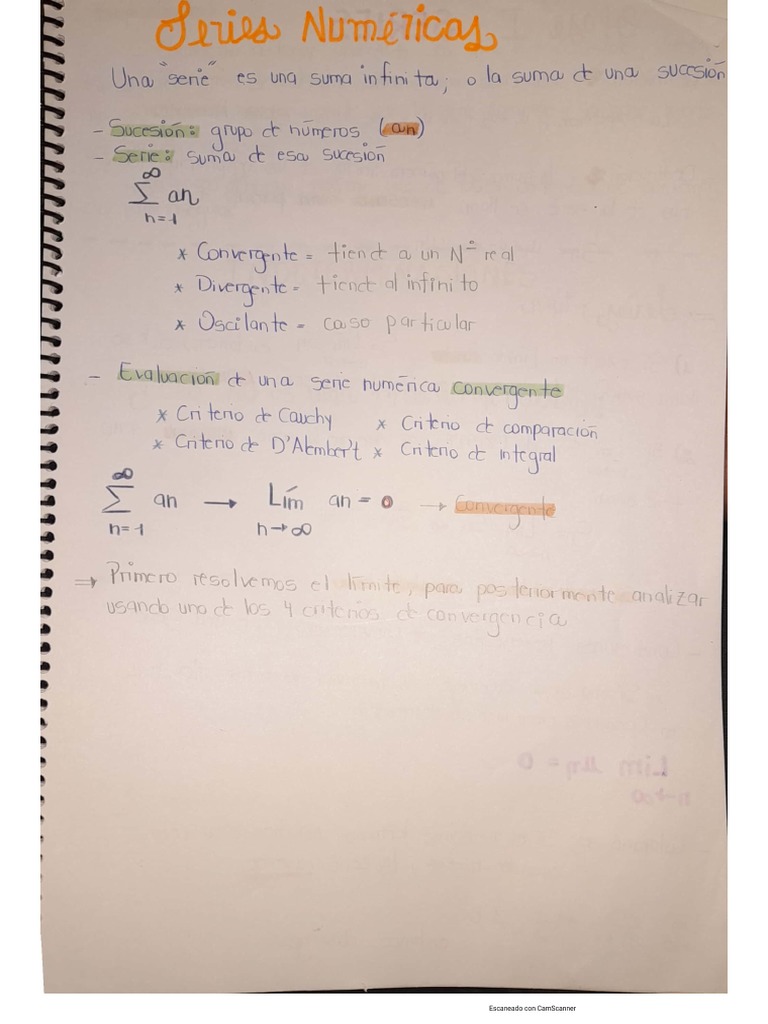 Series Numéricas
Una "serie" es una suma infinita; o la suma d una sucesión
- Sucesión: grupo d números (an)
- Serie: suma de esa sucesión
∞
Σ an
n=1
* Convergente = tiend a un Nº real
* Divergente = tiend al infinito
* Oscilante = caso particular
- Evaluación d una serie numérica convergente
* Criterio de Cauchy * Criterio de comparación
* Criterio de D'Alembert * Criterio de integral
∞
Σ an → Lím an = 0 → Convergente
n=1 n→∞
⇒ Primero resolvemos el límite, para posteriormente analizar
usando uno de los 4 criterios de convergencia
Lim an = 0
n→∞
Escaneado con CamScanner